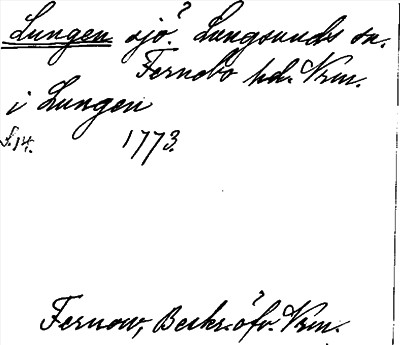 Lungen sjö? Lungsunds sn.
Fernebo hd. Vrm.
i Lungen
S. 14. 1773.
Fernow, Beskr. öfv. Vrm.